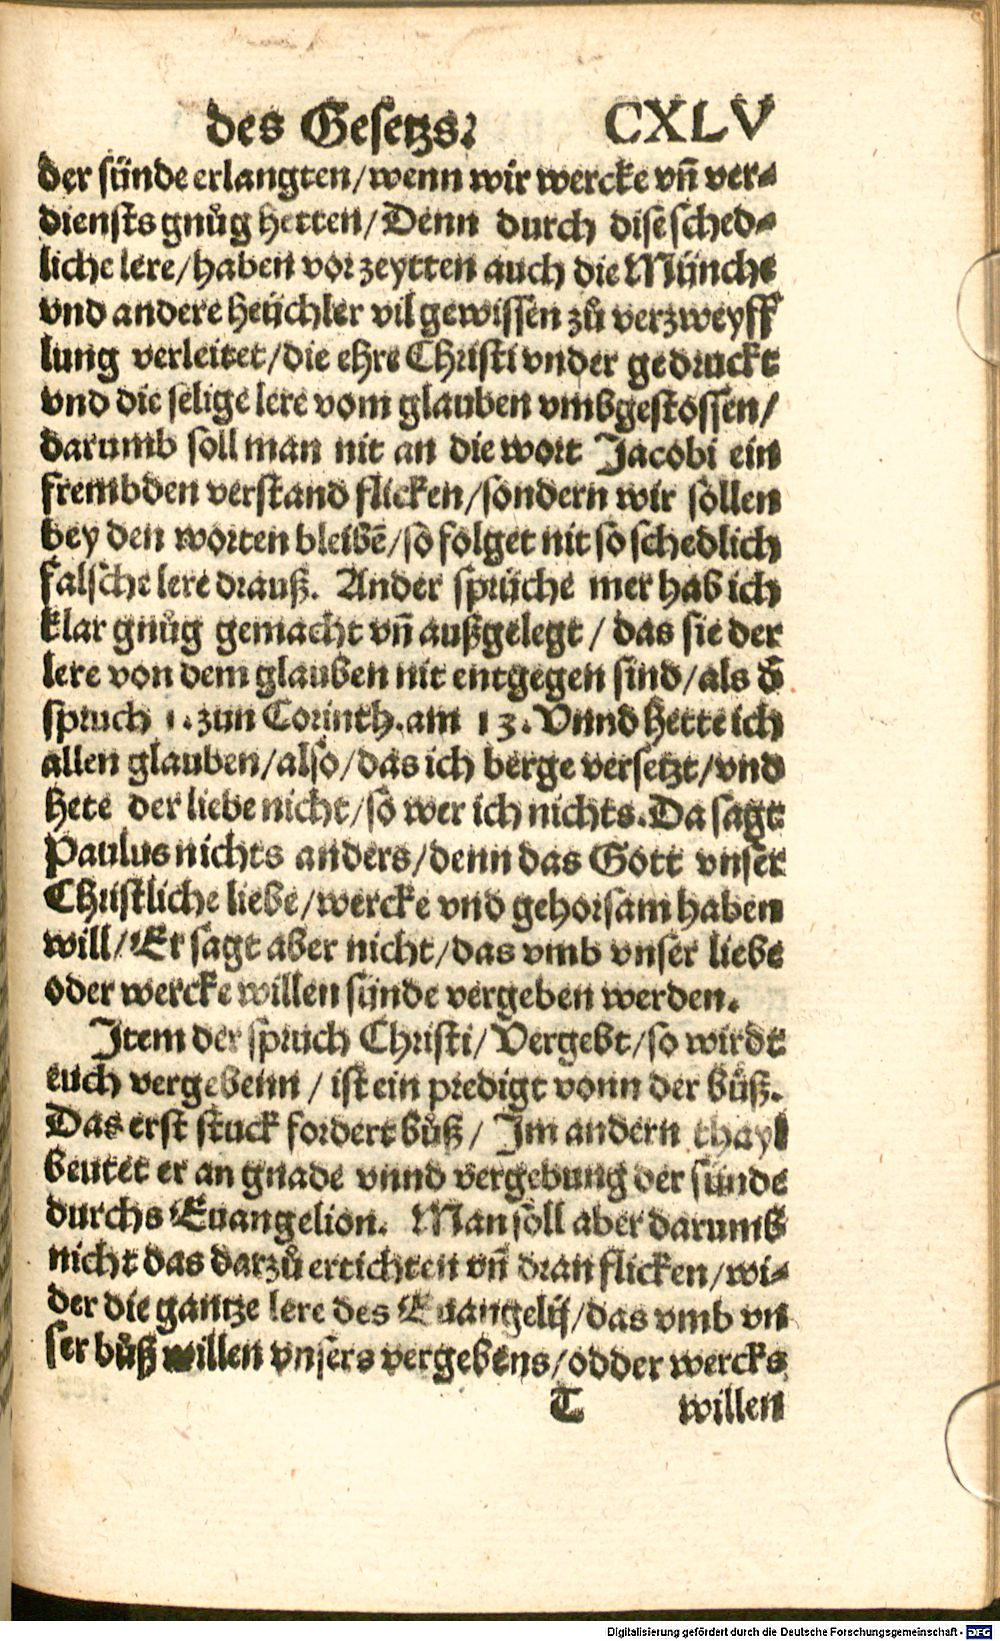 des Gesetzs? CXLV
der sünde erlangten/wenn wir wercke vñ ver-
diensts gnůg hetten/Denn durch dise sched-
liche lere/haben vor zeytten auch die Münche
vnd andere heüchler vil gewissen zů verzweyff
lung verleitet/die ehre Christi vnder gedruckt
vnd die selige lere vom glauben vmbgestossen/
darumb soll man nit an die wort Jacobi ein
frembden verstand flicken/sondern wir sollen
bey den worten bleibē/so folget nit so schedlich
falsche lere drauß. Ander sprüche mer hab ich
klar gnůg gemacht vñ außgelegt / das sie der
lere von dem glauben nit entgegen sind/als d̄
spruch 1. zun Corinth. am 13. Vnnd hette ich
allen glauben/also/das ich berge versetzt/vnd
hete der liebe nicht/so wer ich nichts. Da sagt
Paulus nichts anders/denn das Gott vnser
Christliche liebe/wercke vnd gehorsam haben
will/Er sagt aber nicht/das vmb vnser liebe
oder wercke willen sünde vergeben werden.
Item der spruch Christi/Vergebt/so wirdt
euch vergebenn / ist ein predigt vonn der bůß.
Das erst stuck fordert bůß/ Im andern thayl
beutet er an gnade vnnd vergebung der sünde
durchs Euangelion. Man soll aber darumb
nicht das darzů ertichten vñ dran flicken/wi-
der die gantze lere des Euangelij/das vmb vn
ser bůß willen vnsers vergebens/odder wercks
T willen
Digitalisierung gefördert durch die Deutsche Forschungsgemeinschaft - DFG